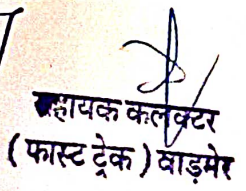 सहायक कलेक्टर
( फास्ट ट्रेक ) बाड़मेर